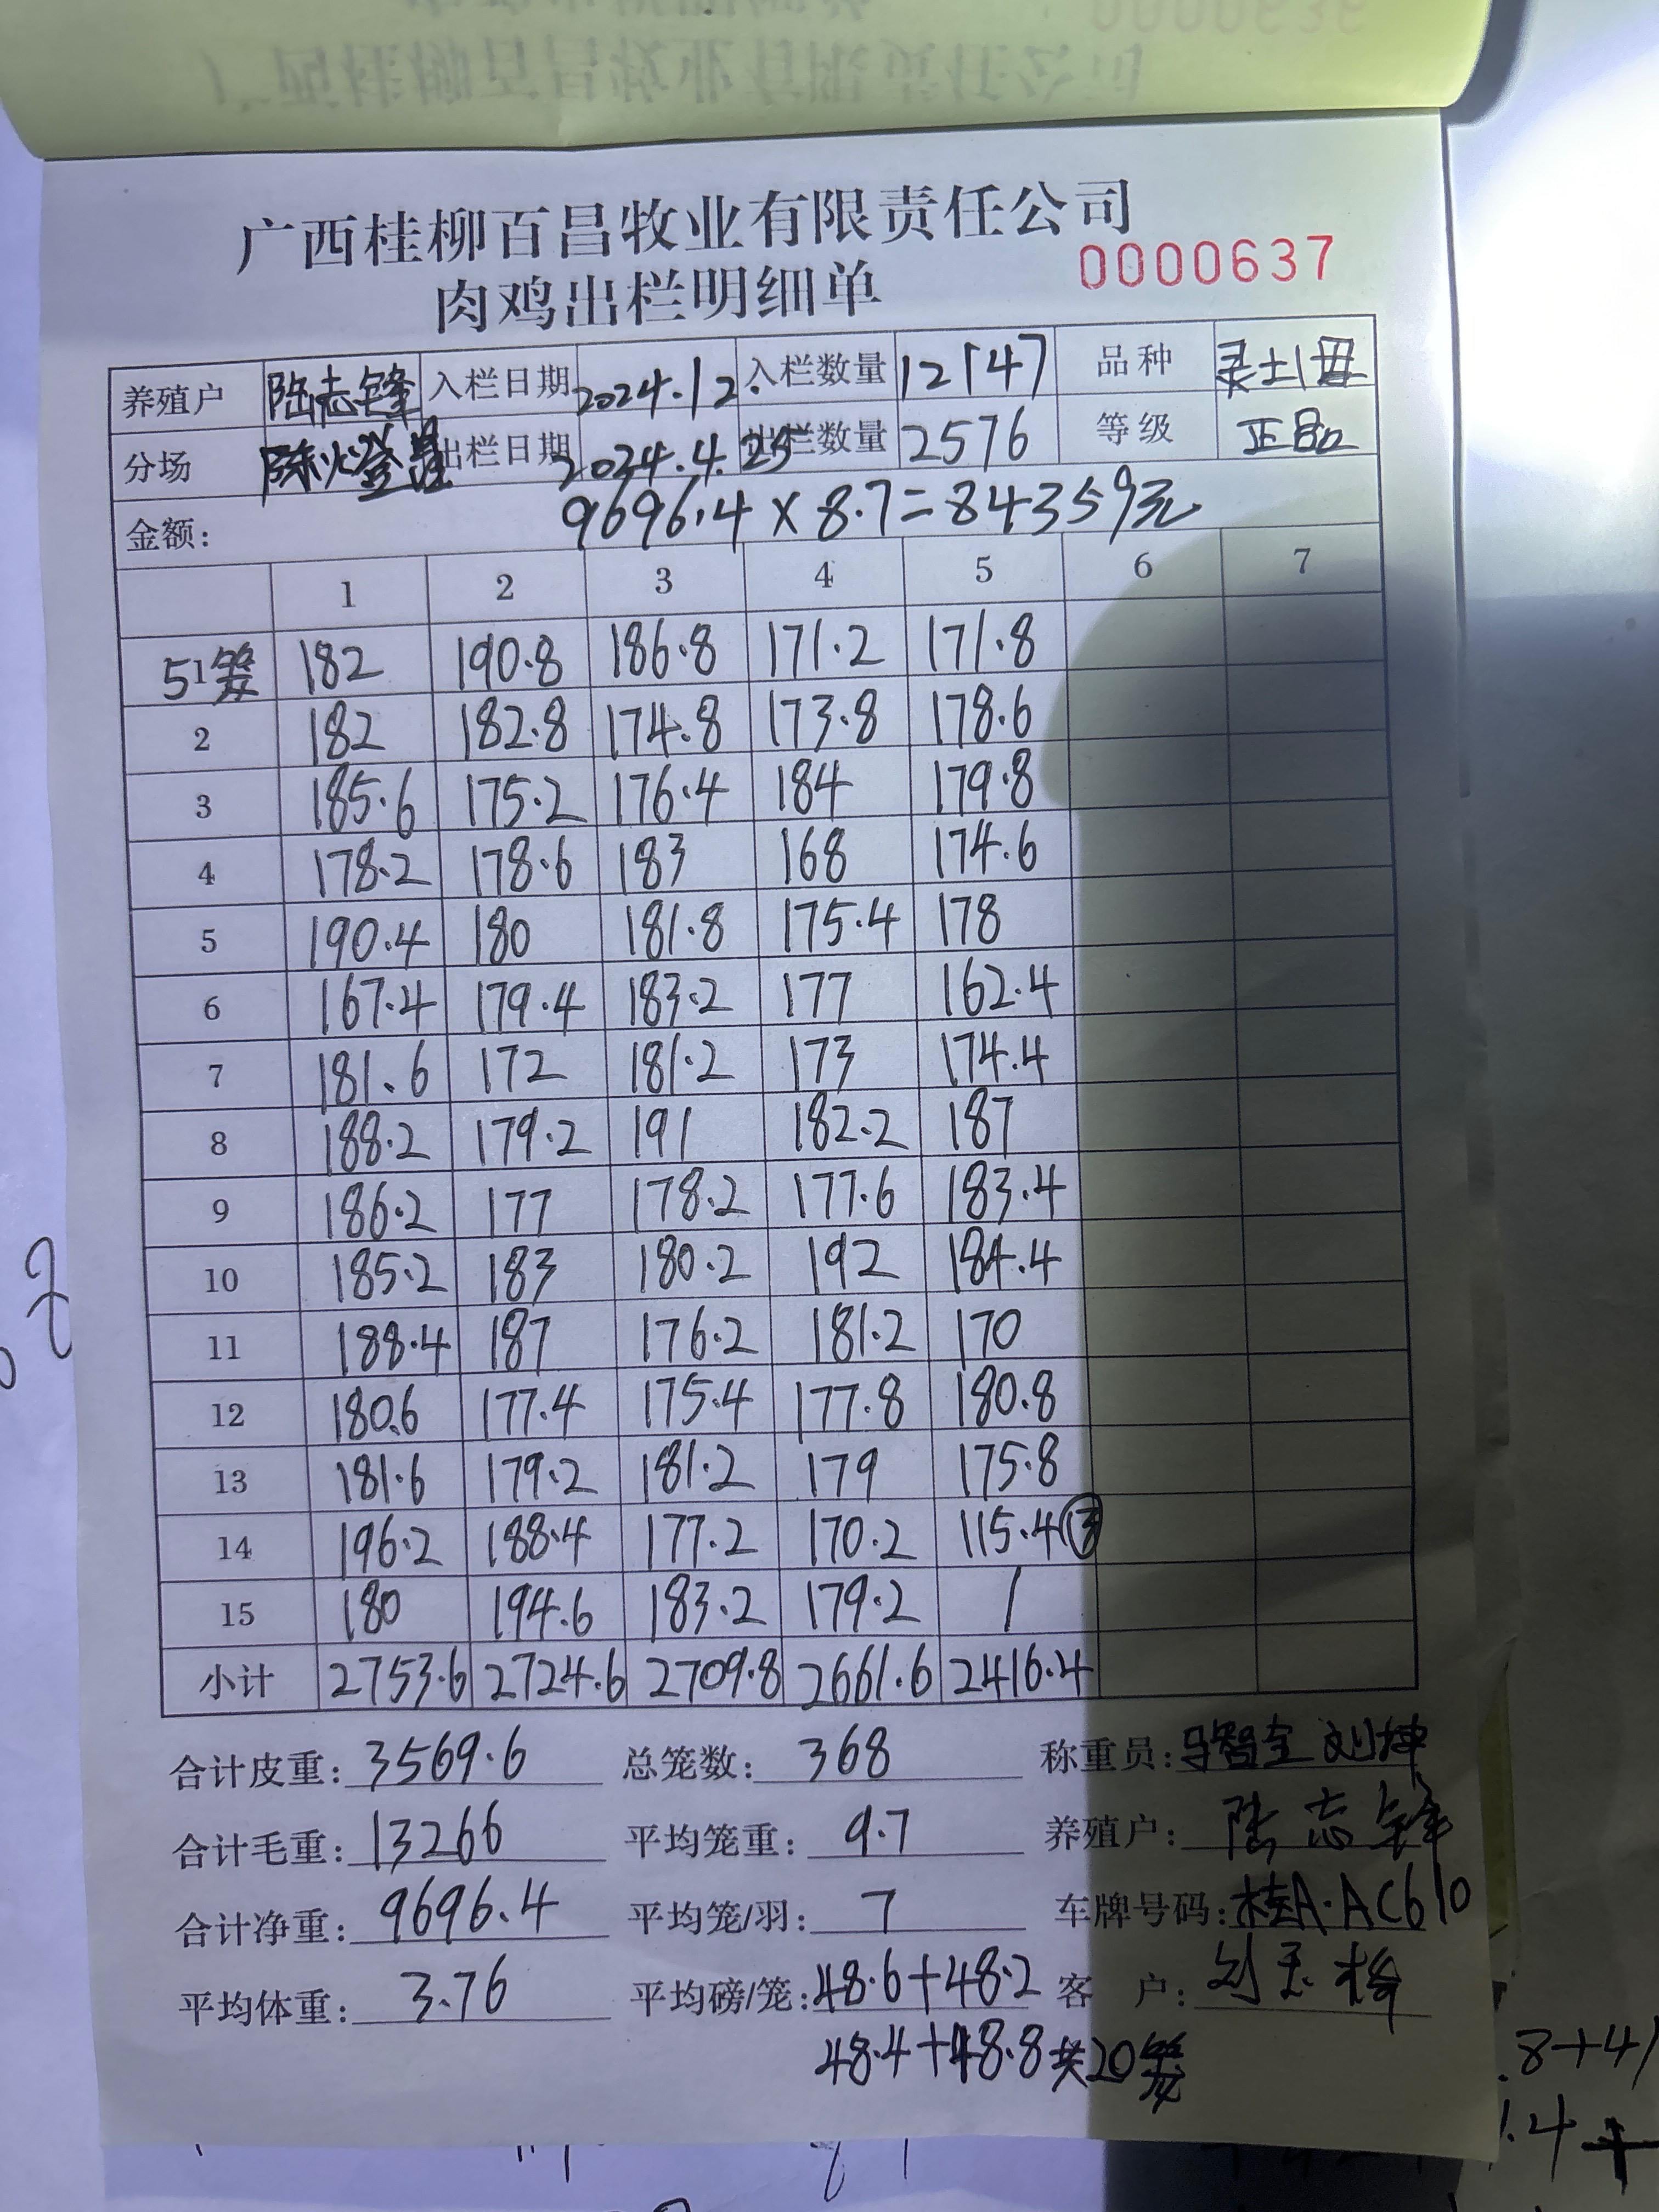 广西桂柳百昌牧业有限责任公司
肉鸡出栏明细单 0000637
养殖户 陆志锋 入栏日期 2024.12. 入栏数量 12147 品种 灵土1母
分场 出栏日期 2024.4.25 出栏数量 2576 等级 正品
金额: 9696.4×8.7=84359元
1 2 3 4 5 6 7
51笼 182 190.8 186.8 171.2 171.8
2 182 182.8 174.8 173.8 178.6
3 185.6 175.2 176.4 184 179.8
4 178.2 178.6 183 168 174.6
5 190.4 180 181.8 175.4 178
6 167.4 179.4 183.2 177 162.4
7 181.6 172 181.2 173 174.4
8 188.2 179.2 191 182.2 187
9 186.2 177 178.2 177.6 183.4
10 185.2 183 180.2 192 184.4
11 188.4 187 176.2 181.2 170
12 180.6 177.4 175.4 177.8 180.8
13 181.6 179.2 181.2 179 175.8
14 196.2 188.4 177.2 170.2 115.4 ③
15 180 194.6 183.2 179.2 /
小计 2753.6 2724.6 2709.8 2661.6 2416.4
合计皮重: 3569.6 总笼数: 368 称重员: 刘坤
合计毛重: 13266 平均笼重: 9.7 养殖户: 陆志锋
合计净重: 9696.4 平均笼/羽: 7 车牌号码: 桂A·AC610
平均体重: 3.76 平均磅/笼: 48.6+48.2 客 户:
48.4+48.8 共20笼
.8+41
1.4+